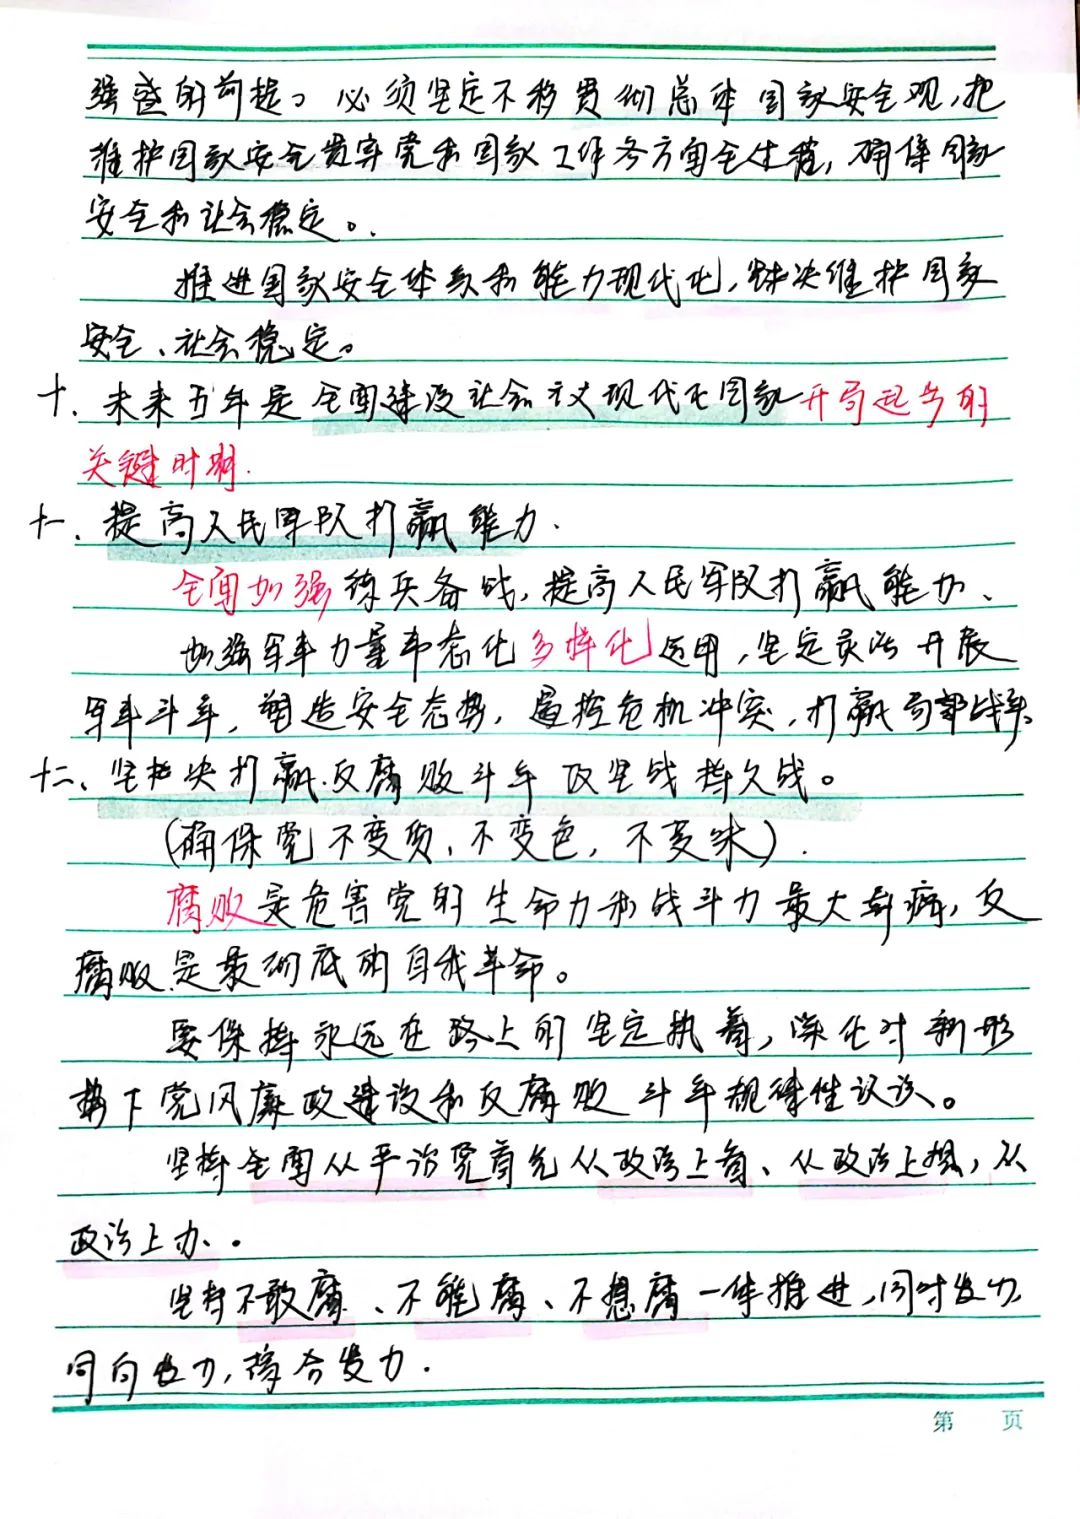 强盛的前提。必须坚定不移贯彻总体国家安全观,把
维护国家安全贯穿党和国家工作各方面全过程,确保国家
安全和社会稳定。
推进国家安全体系和能力现代化,坚决维护国家
安全、社会稳定。
十、未来五年是全面建设社会主义现代化国家开局起步的
关键时期.
十一、提高人民军队打赢能力.
全面加强练兵备战,提高人民军队打赢能力、
加强军事力量常态化多样化运用,坚定灵活开展
军事斗争,塑造安全态势,遏控危机冲突,打赢局部战争.
十二、坚决打赢反腐败斗争攻坚战持久战。
(确保党不变质、不变色,不变味).
腐败是危害党的生命力和战斗力最大毒瘤,反
腐败是最彻底的自我革命。
要保持永远在路上的坚定执着,深化对新形
势下党风廉政建设和反腐败斗争规律性认识。
坚持全面从严治党首先从政治上看、从政治上想,从
政治上办、.
坚持不敢腐、不能腐、不想腐一体推进,同时发力,
同向发力,综合发力.
第 页